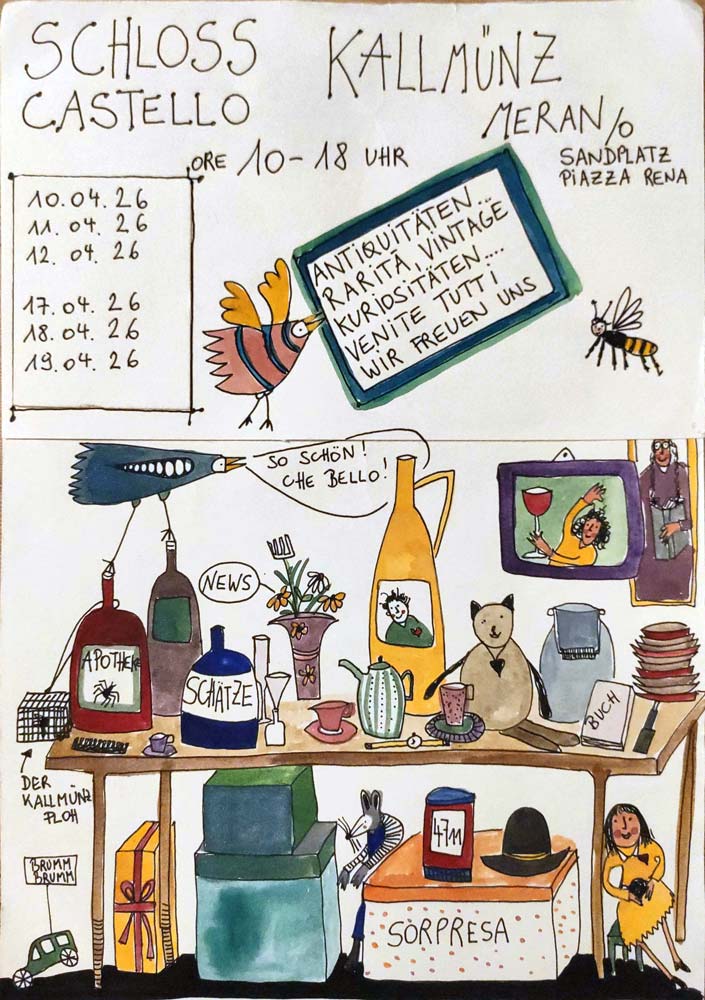 SCHLOSS KALLMÜNZ
CASTELLO
MERAN/O
SANDPLATZ
PIAZZA RENA
ORE 10-18 UHR
10.04.26
11.04.26
12.04.26
17.04.26
18.04.26
19.04.26
ANTIQUITÄTEN...
RARITÀ, VINTAGE
KURIOSITÄTEN....
VENITE TUTTI
WIR FREUEN UNS
SO SCHÖN!
CHE BELLO!
NEWS
APOTHEKE
SCHÄTZE
BUCH
DER
KALLMÜNZ
FLOH
BRUMM
BRUMM
4711
SORPRESA